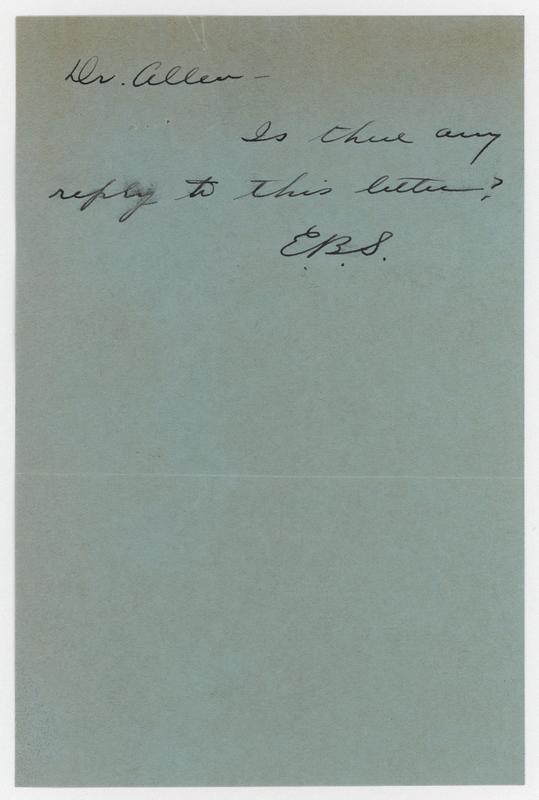 Dr. Allen –
Is there any
reply to this letter?
E.B.S.